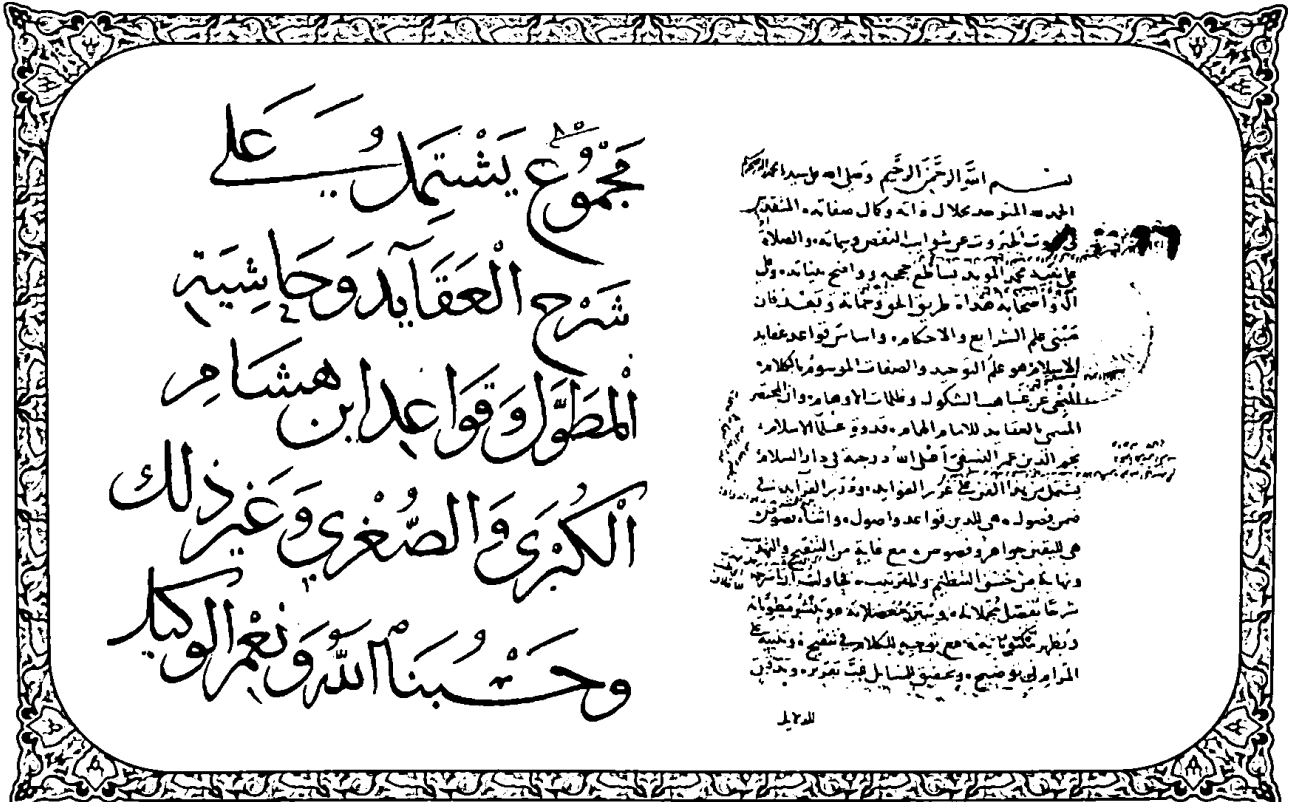 بسم الله الرحمن الرحيم وصلى الله على سيدنا محمد
الحمد لله المتوحد بجلال ذاته وكمال صفاته، المتقدس
في نعوت الجبروت عن شوايب النقص وسماته، والصلاة
على نبيه محمد المويد بساطع حججه وواضح بيناته، وعلى
آله وأصحابه هداة طريق الحق وحماته وبعد فان
مبنى علم الشرايع والاحكام، واساس قواعد عقايد
الاسلام هو علم التوحيد والصفات الموسوم بالكلام،
المنجي عن غياهب الشكوك وظلمات الاوهام، وان المختصر
المسمى بالعقايد للامام الهمام، قدوة علما الاسلام،
نجم الدين عمر النسفي أعلى الله درجته في دار السلام
يشتمل من هذا الفن على غرر الفوايد، ودرر الفرايد في
ضمن فصول، هي للدين قواعد واصول، واثناء نصوص
هي لليقين جواهر وفصوص، مع غاية من التنقيح والتهذيب
ونهاية من حسن التنظيم والترتيب، فحاولت أن اشرحه
شرحا يفصل مجملاته، ويبين معضلاته، وينشر مطوياته
ويظهر مكنوناته، مع توجيه للكلام في تنقيح، وتنبيه على
المرام في توضيح، وتحقيق للمسايل غب تقرير، وتدقيق
للدلايل
مجموع يشتمل على
شرح العقايد وحاشية
المطول وقواعد ابن هشام
الكبرى والصغرى وغير ذلك
وحسبنا الله ونعم الوكيل